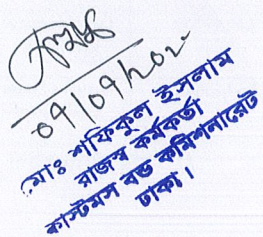 ০৭/০৭/২০২০
মোঃ শফিকুল ইসলাম
রাজস্ব কর্মকর্তা
কাস্টমস বন্ড কমিশনারেট
ঢাকা।